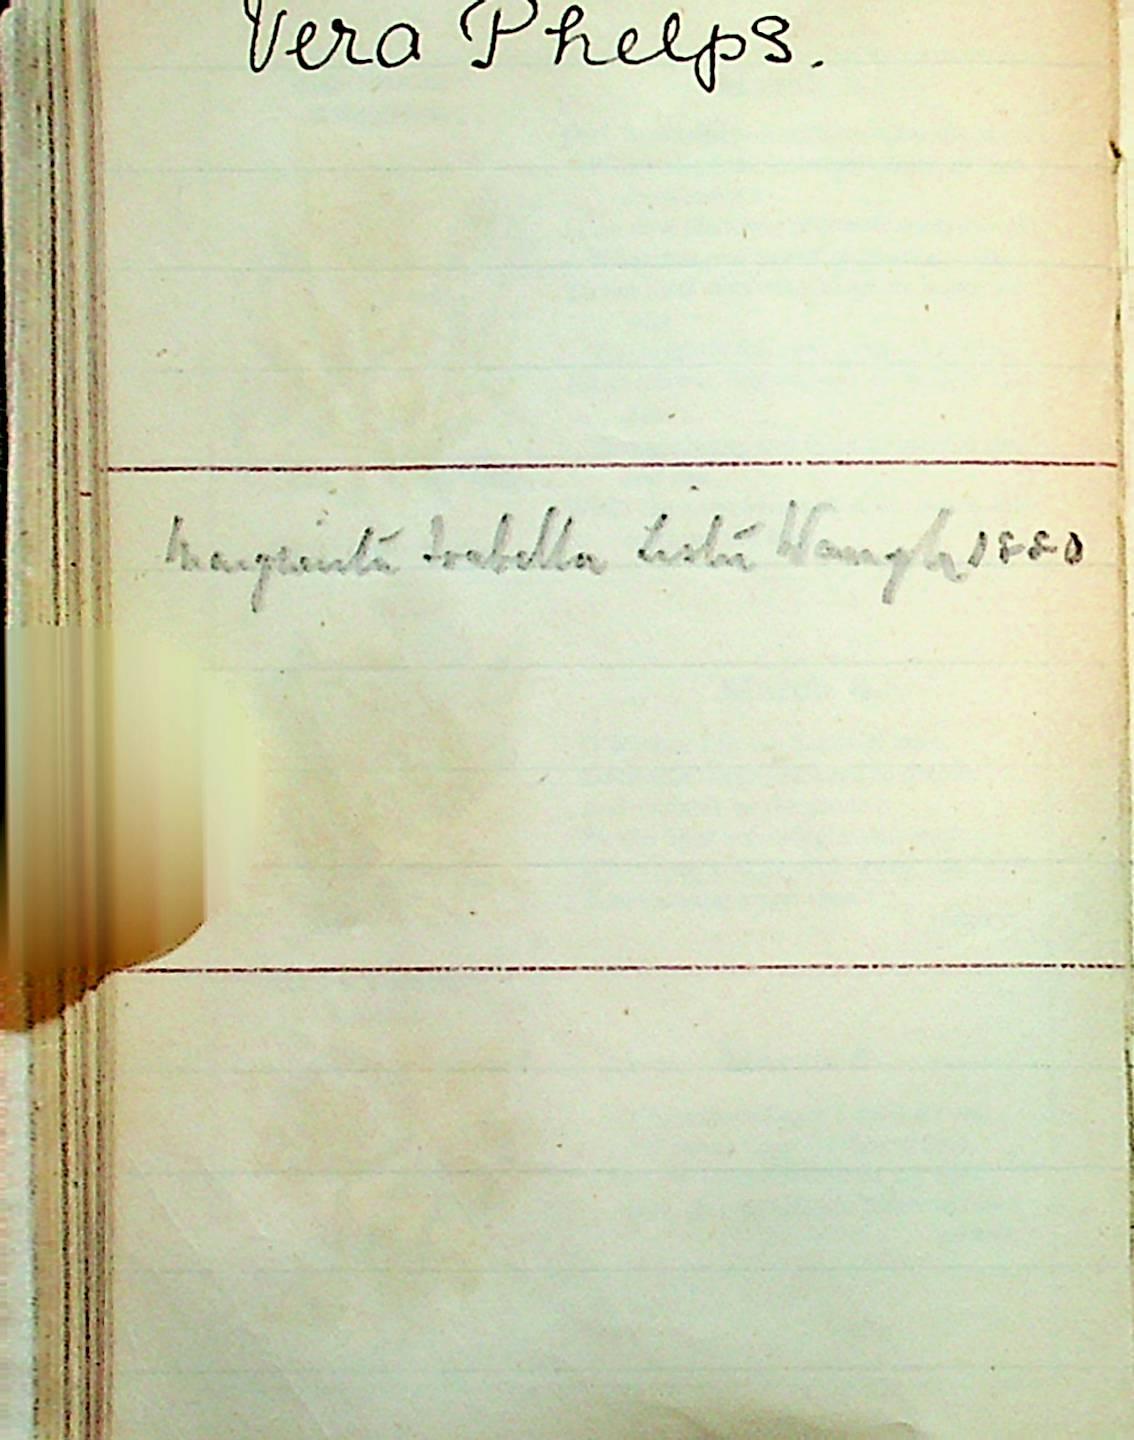 Vera Phelps.
Marguerita Isabella Waugh 1880